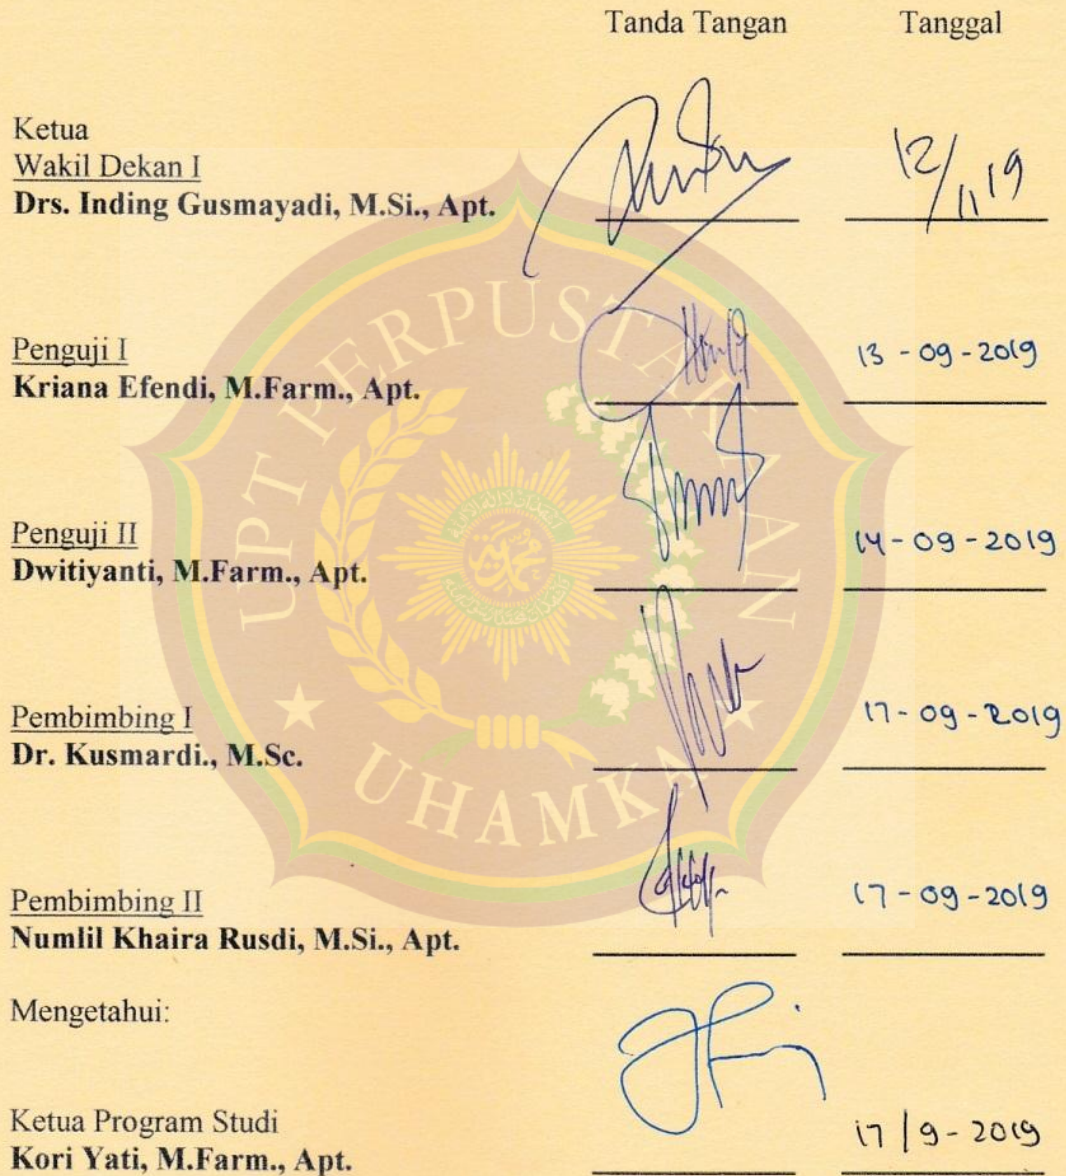 Tanda Tangan Tanggal
Ketua
Wakil Dekan I
Drs. Inding Gusmayadi, M.Si., Apt. 12/11 19
Penguji I
Kriana Efendi, M.Farm., Apt. 13-09-2019
Penguji II
Dwitiyanti, M.Farm., Apt. 14-09-2019
Pembimbing I
Dr. Kusmardi., M.Sc. 17-09-2019
Pembimbing II
Numlil Khaira Rusdi, M.Si., Apt. 17-09-2019
Mengetahui:
Ketua Program Studi
Kori Yati, M.Farm., Apt. 17/9-2019
UPT PERPUSTAKAAN
UHAMKA